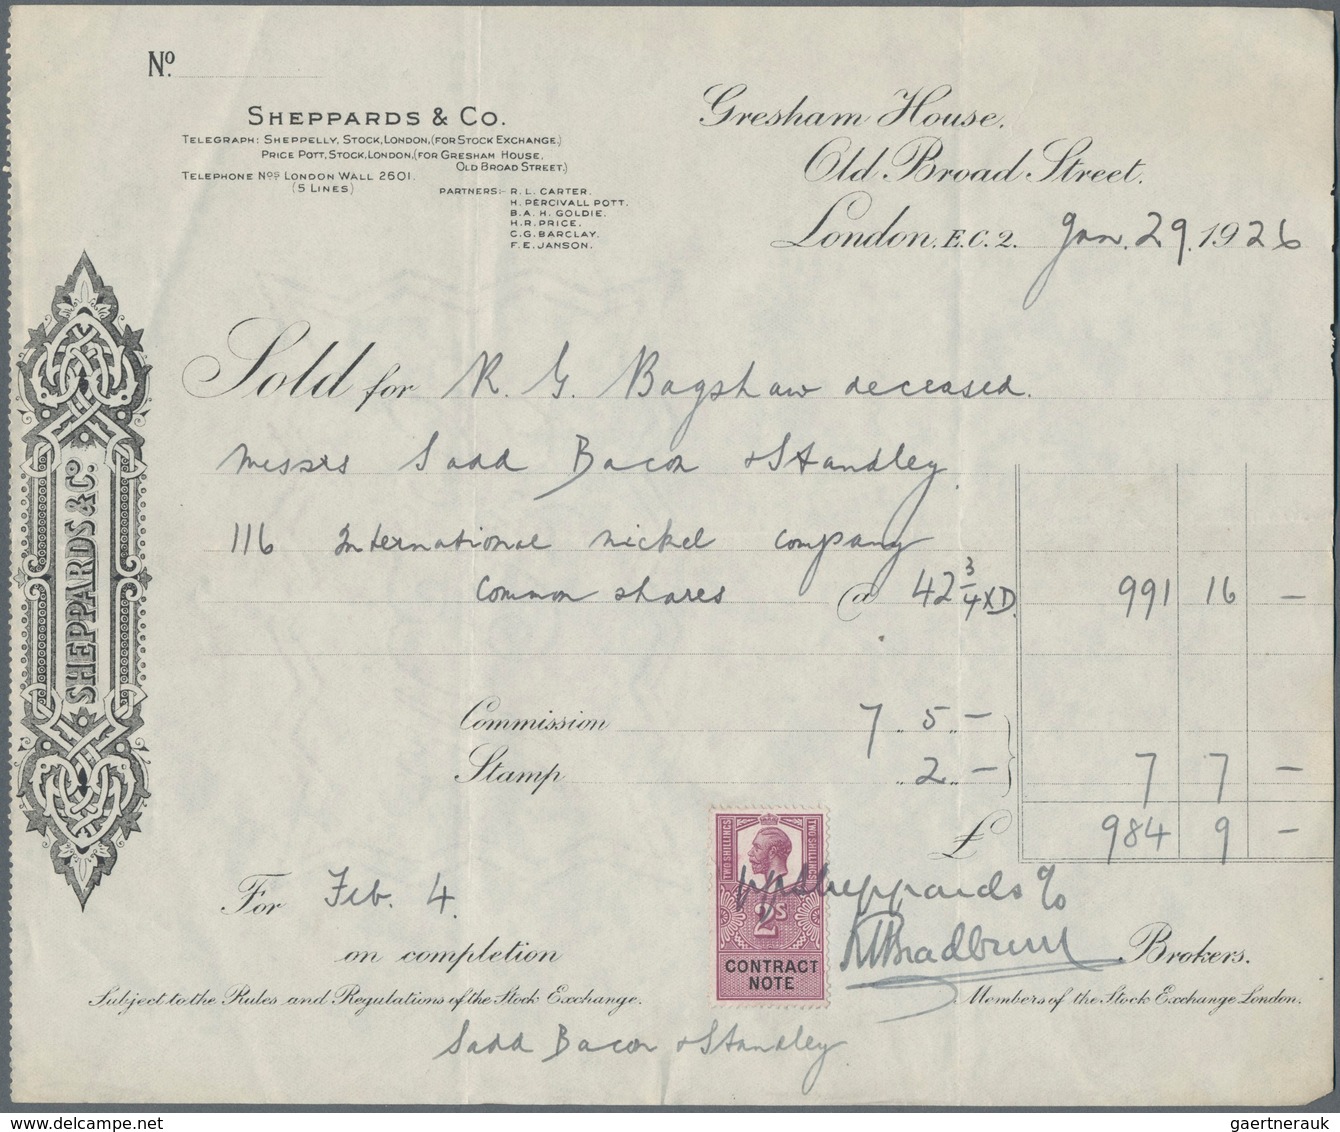 No.
SHEPPARDS & CO.
TELEGRAPH: SHEPPELLY, STOCK, LONDON, (FOR STOCK EXCHANGE.)
PRICE POTT, STOCK, LONDON, (FOR GRESHAM HOUSE,
OLD BROAD STREET.)
TELEPHONE Nos LONDON WALL 2601.
(5 LINES)
PARTNERS:- R. L. CARTER.
H. PERCIVALL POTT.
B. A. H. GOLDIE.
H. R. PRICE.
C. G. BARCLAY.
F. E. JANSON.
Gresham House,
Old Broad Street,
London, E.C.2. Jan. 29. 1926
SHEPPARDS & Co.
Sold for R. G. Bagshaw deceased.
Messrs Sadd Bacon & Standley
116 International nickel company
common shares @ 42 3/4 XD. 991 16 —
Commission 7 „ 5 „ —
Stamp „ 2 „ — 7 7 —
£ 984 9 —
TWO SHILLINGS TWO SHILLINGS
2s
CONTRACT
NOTE
For Feb. 4.
on completion
pp Sheppards & Co
Bradburn Brokers.
Subject to the Rules and Regulations of the Stock Exchange.
Members of the Stock Exchange London.
Sadd Bacon & Standley
gaertnerauk
www.delcampe.net